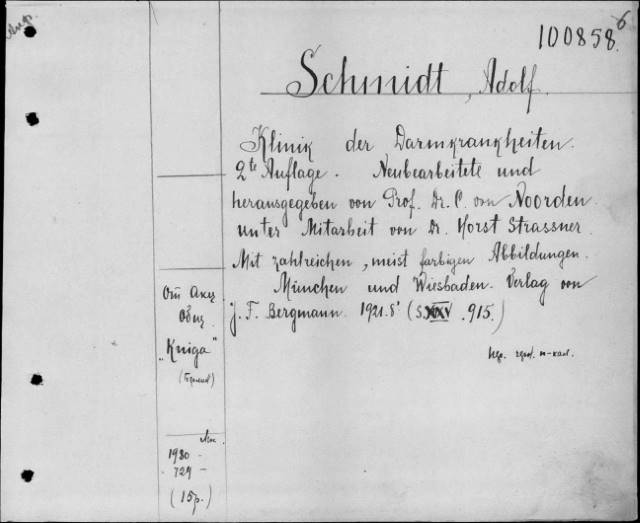 100858
6
Schmidt, Adolf.
Klinik der Darmkrankheiten.
2te Auflage. Neubearbeitete und
herausgegeben von Prof. Dr. C. von Noorden
unter Mitarbeit von Dr. Horst Strassner.
Mit zahlreichen, meist farbigen Abbildungen.
München und Wiesbaden. Verlag von
J. F. Bergmann. 1921. 8° (S. XXV. 915.)
От Акц.
Общ.
„Kniga"
1930 -
729 -
(15 р.)